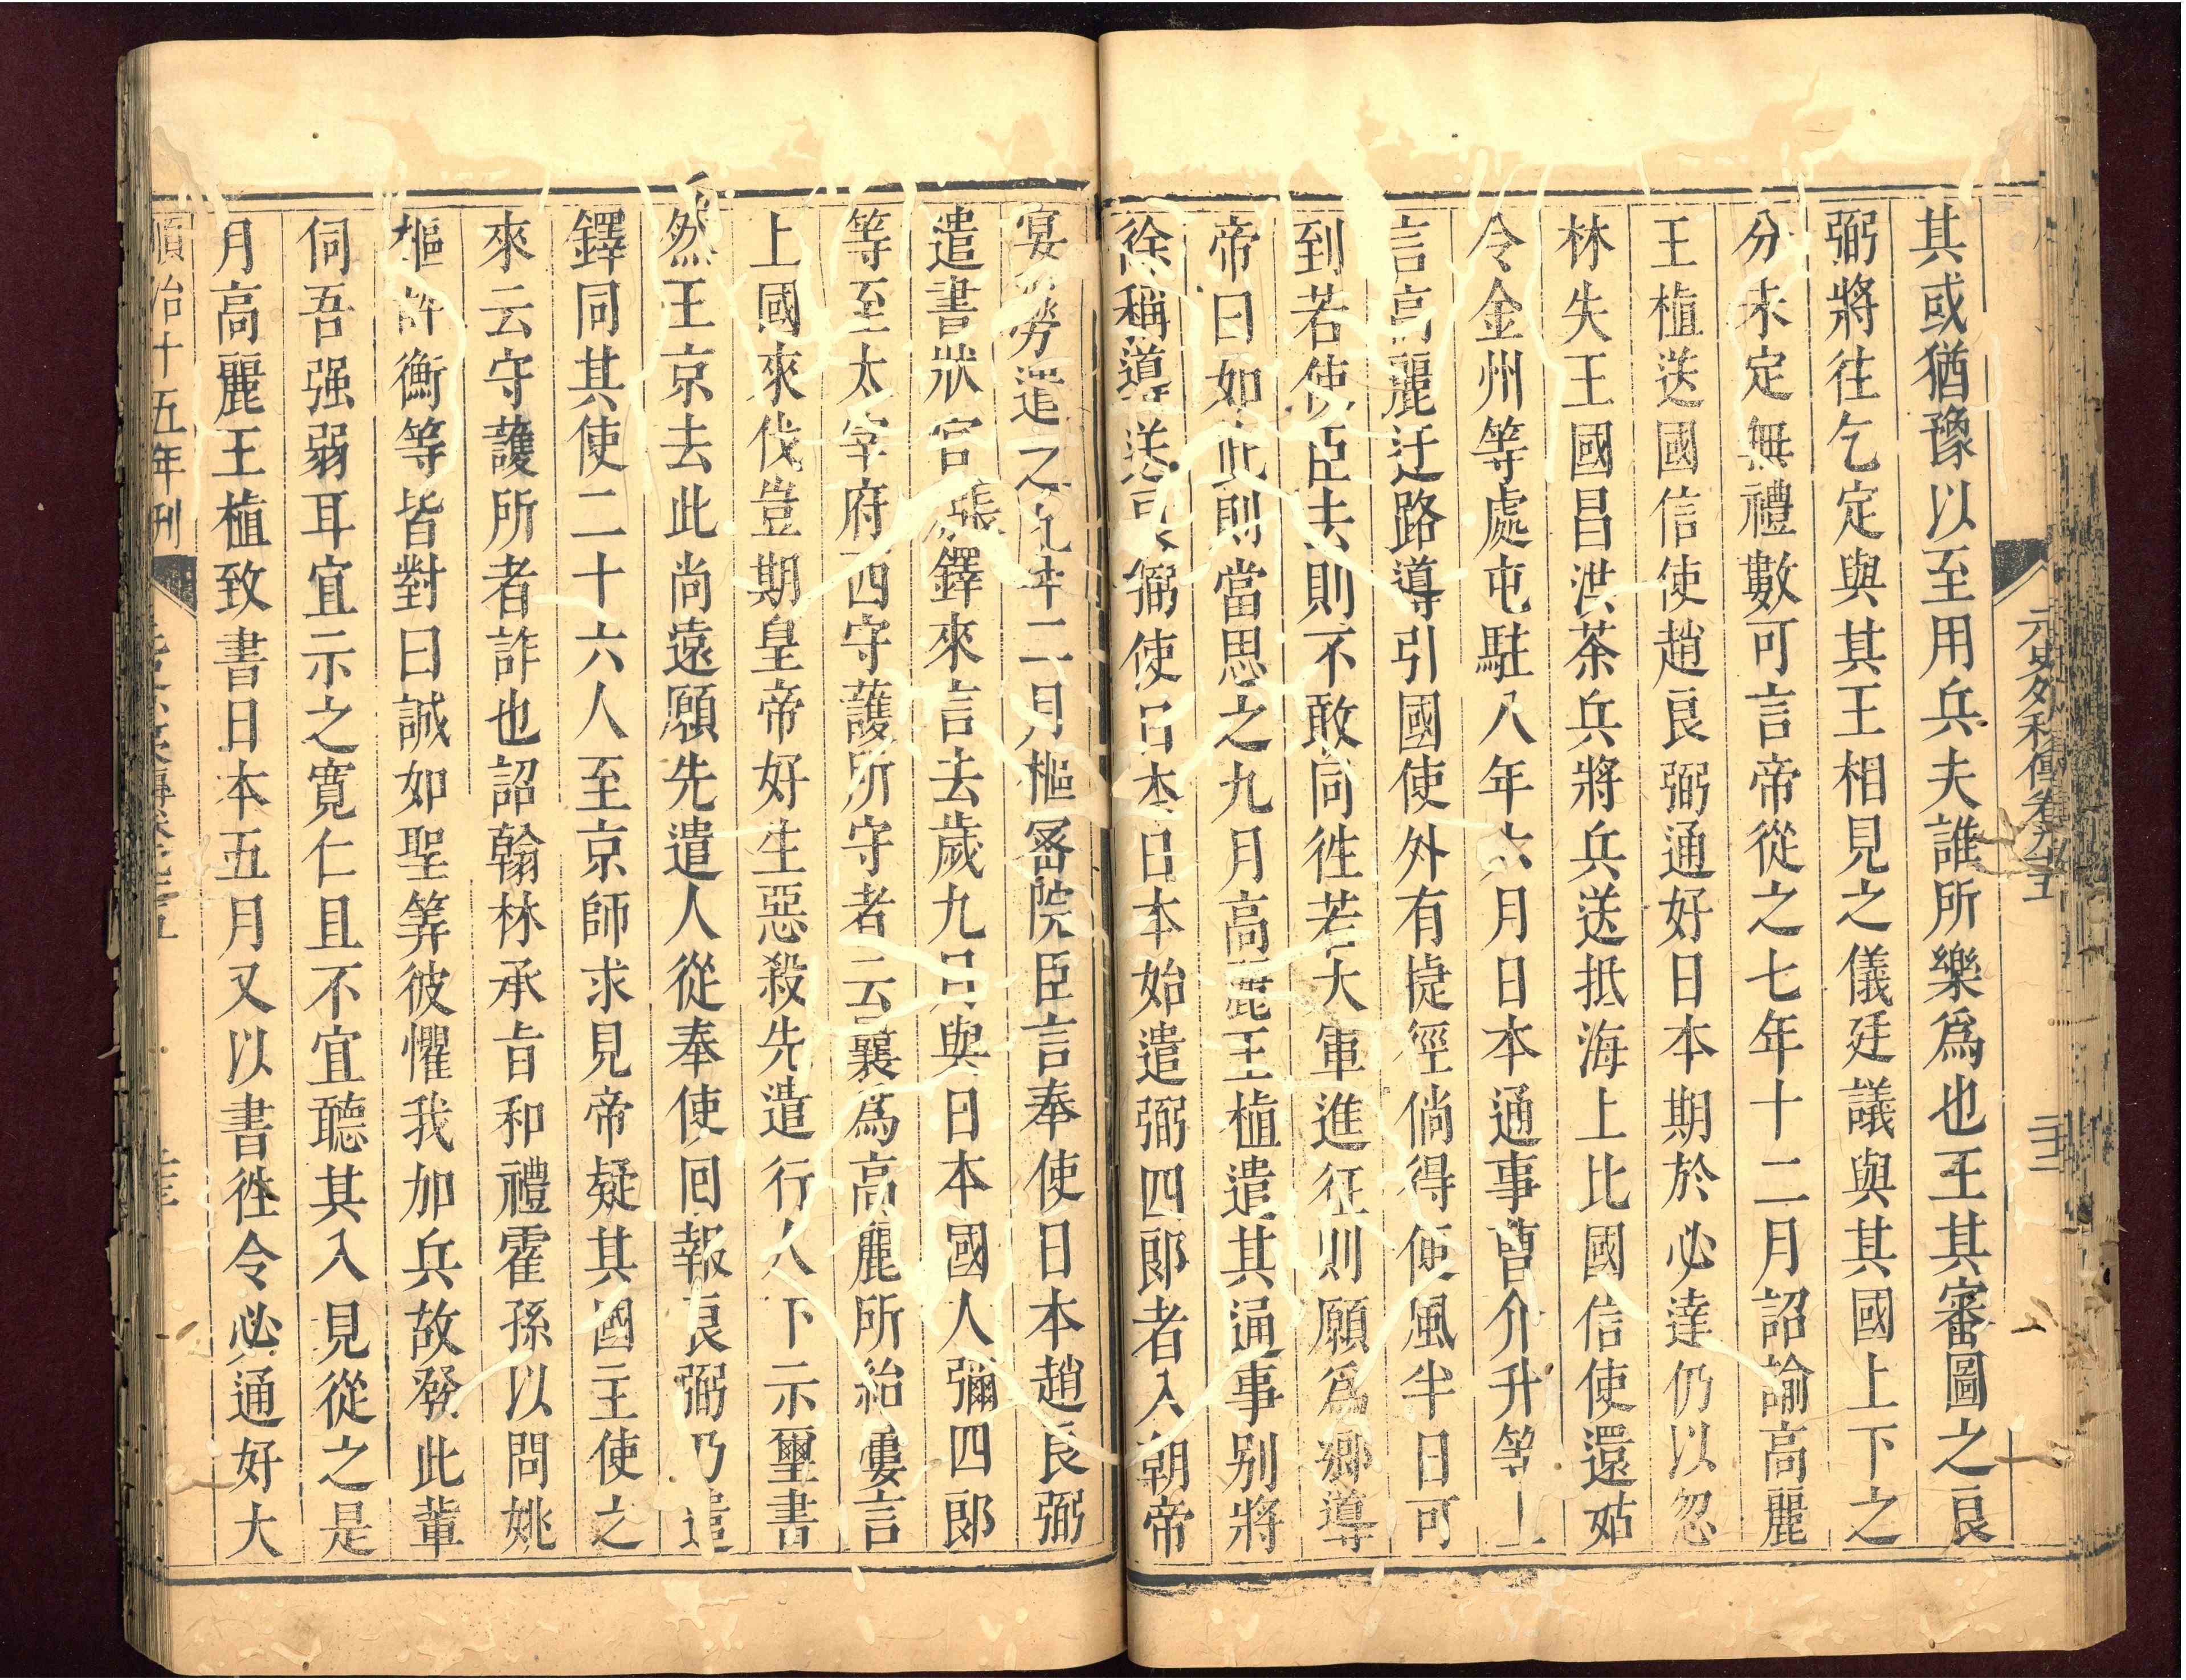 元史外夷傳卷九十五
其或猶豫以至用兵夫誰所樂爲也王其審圖之良
弼將往乞定與其王相見之儀廷議與其國上下之
分未定無禮數可言帝從之七年十二月詔諭高麗
王植送國信使趙良弼通好日本期於必達仍以忽
林失王國昌洪茶兵將兵送抵海上比國信使還姑
令金州等處屯駐八年六月日本通事曹介升等上
言高麗迂路導引國使外有捷徑倘得便風半日可
到若使臣去則不敢同徃若大軍進征則願爲鄉導
帝曰如此則當思之九月高麗王植遣其通事別將
徐稱導送良弼使日本日本始遣弥四郎者入朝帝
宴勞遣之九年二月樞密院臣言奉使日本趙良弼
遣書狀官張鐸來言去歲九月與日本國人彌四郎
等至太宰府西守護所守者云曩爲高麗所紿屢言
上國來伐豈期皇帝好生惡殺先遣行人下示璽書
然王京去此尚遠願先遣人從奉使囘報良弼乃遣
鐸同其使二十六人至京師求見帝疑其國主使之
來云守護所者詐也詔翰林承旨和禮霍孫以問姚
樞許衡等皆對曰誠如聖筭彼懼我加兵故發此輩
伺吾强弱耳宜示之寬仁且不宜聽其入見從之是
月高麗王植致書日本五月又以書徃令必通好大
順治十五年刊